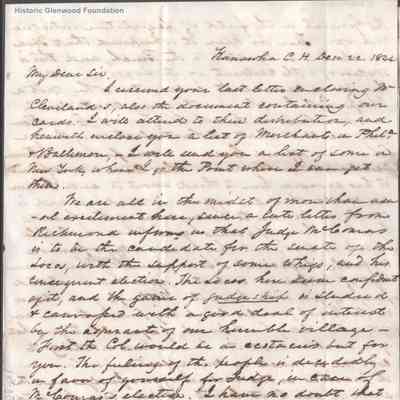 Historic Glenwood Foundation
Kanawha C. H. Decr 22. 184
My Dear Sir,
I received your last letter enclosing Mr
Cleveland's, also the document containing our
cards. I will attend to their distribution, and
herewith enclose you a list of Merchants in Phila
& Baltimore, - I will send you a list of some in
New York, when I go the Point where I can get
them.
We are all in the midst of more than usu
-al excitement here, since a late letter from
Richmond informs us that Judge McComas
is to be the candidate for the senate of the
Locos, with the support of some whigs, and his
consequent election. The Locos here seem confident
of it, and the game of judgeship is studied
& canvassed with a good deal of interest
by the aspirants of our humble village -
First the Col. would be a but for
you. The feelings of the people is decidedly
in favor of yourself for Judge, in case of
McComas's election. I have no doubt that